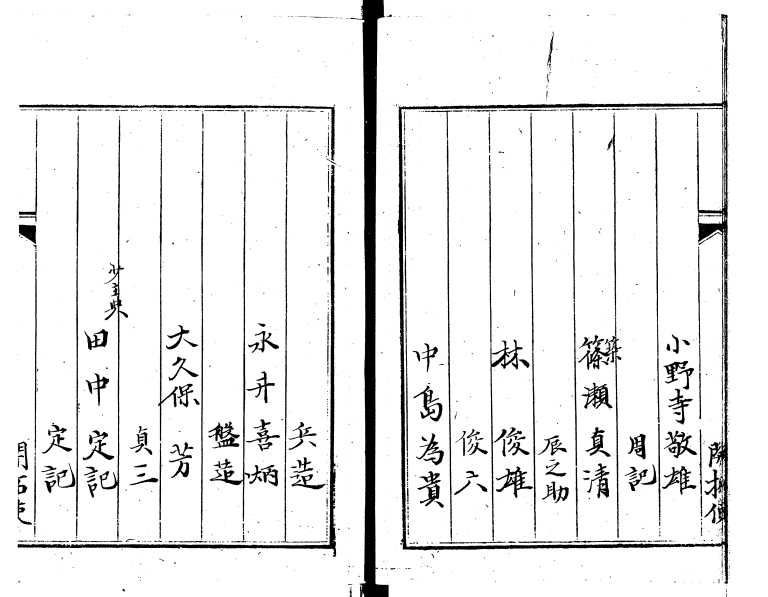 開拓使
小野寺敬雄
周記
篠瀬真清
築
辰之助
林俊雄
俊六
中島為貴
兵造
永井喜炳
盤造
大久保芳
貞三
少主典
田中定記
定記
開拓使